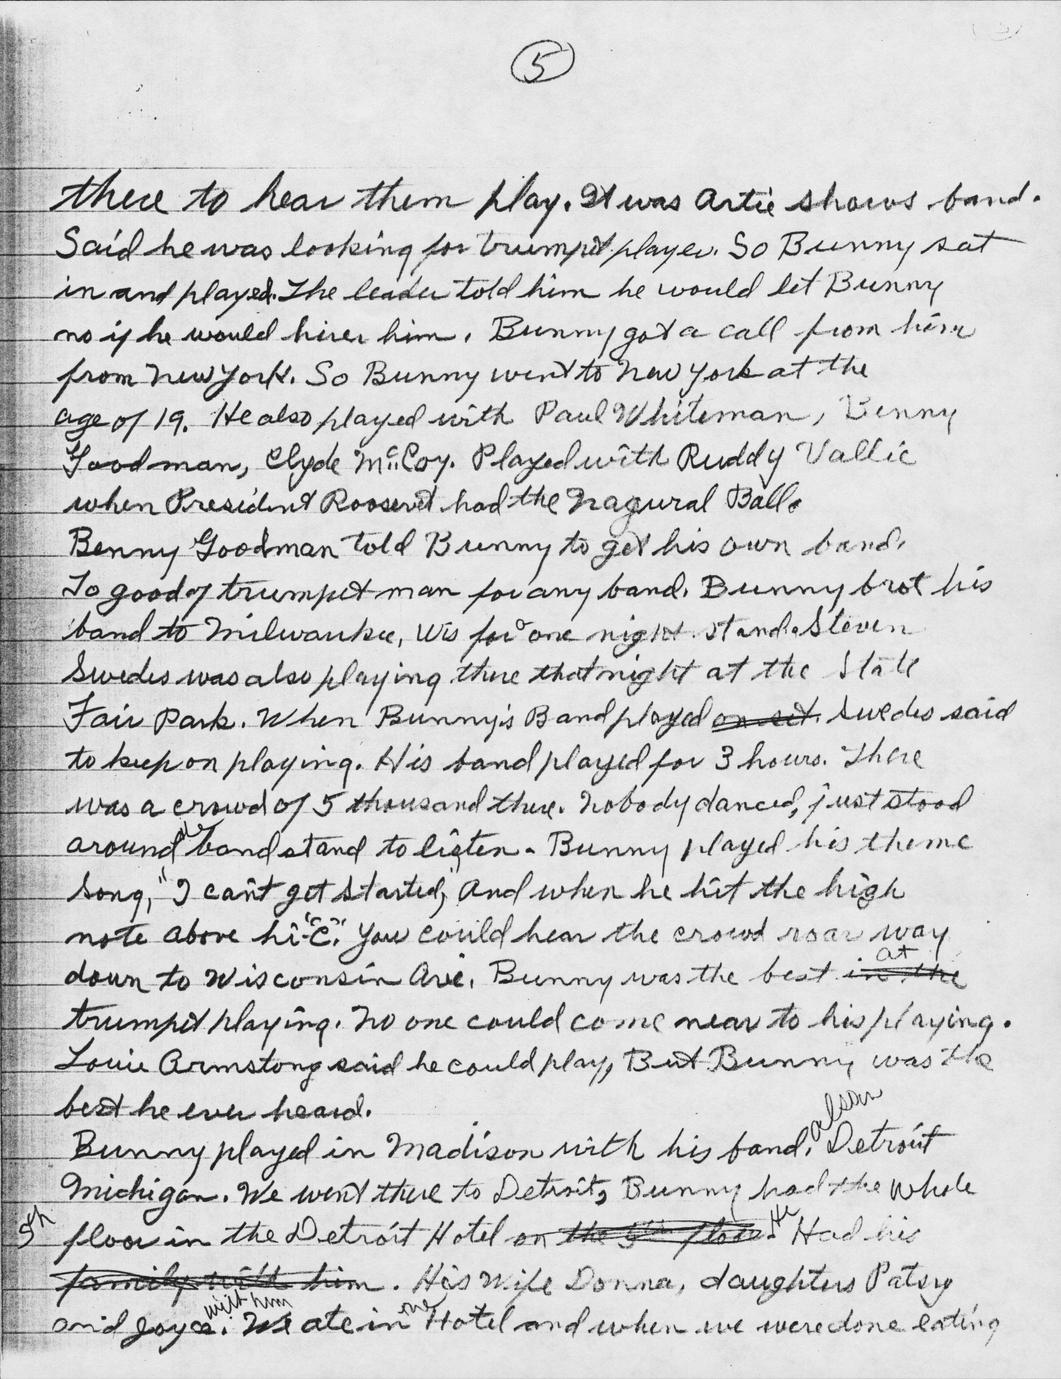 5
there to hear them play. It was Artie shows band.
Said he was looking for trumpet player. So Bunny sat
in and played. The leader told him he would let Bunny
no if he would hirer him. Bunny got a call from him
from New York. So Bunny went to New York at the
age of 19. He also played with Paul Whiteman, Benny
Goodman, Clyde McCoy. Played with Ruddy Vallie
when President Roosevet had the Nagural Ball.
Benny Goodman told Bunny to get his own band.
To good of trumpet man for any band. Bunny brot his
band to Milwaukee, Wis for one night stand. Steven
Swedes was also playing there that night at the State
Fair Park. When Bunny's Band played on set. Swedes said
to keep on playing. His band played for 3 hours. There
was a crowd of 5 thousand there. Nobody danced, just stood
around the band stand to listen. Bunny played his theme
Song, "I can't get started," And when he hit the high
note above hi "C". You could hear the crowd roar way
down to Wisconsin Ave. Bunny was the best in the at
trumpet playing. No one could come near to his playing.
Louie Armstong said he could play, But Bunny was the
best he ever heard.
Bunny played in Madison with his band. Detroit
Michigan. We went there to Detroit, Bunny had the whole
5th floor in the Detroit Hotel on the 5th floor. He Had his
family with him. His Wife Donna, daughters Patsy
and Joyce with him. We ate in the Hotel and when we were done eating